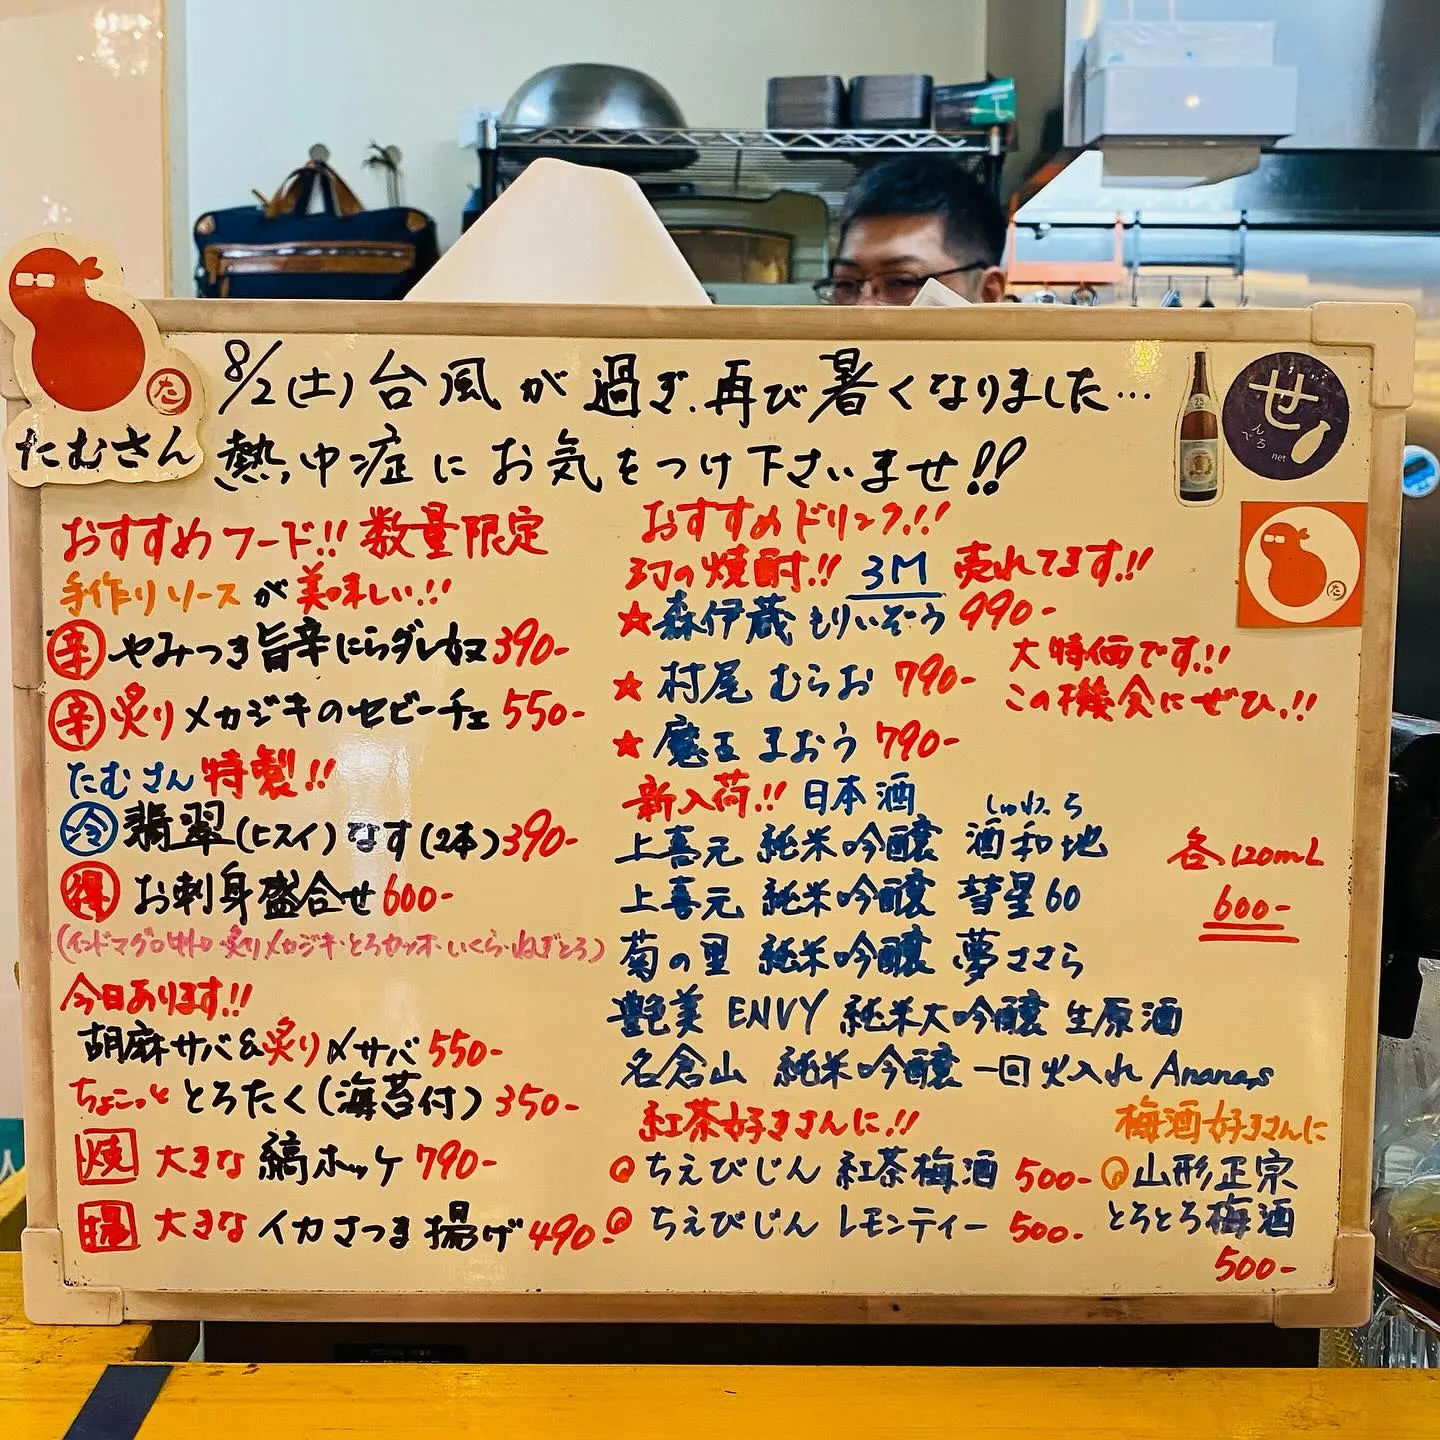 8/2(土)台風が過ぎ、再び暑くなりました…
熱中症にお気をつけ下さいませ!!
たむさん
た
せ
んろ
で
net
おすすめフード!! 数量限定
手作りソースが美味しい!!
辛 やみつき旨辛にらダレ奴 390-
辛 炙りメカジキのセビーチェ 550-
たむさん特製!!
冷 翡翠(ヒスイ)なす(2本) 390-
得 お刺身盛合せ 600-
(インドマグロ中トロ・炙りメカジキ・とろカツオ・いくら・ねぎとろ)
今日あります!!
胡麻サバ&炙り〆サバ 550-
ちょこっと とろたく(海苔付) 350-
焼 大きな 縞ホッケ 790-
揚 大きな イカさつま揚げ 490-
おすすめドリンク!!
幻の焼酎!! 3M 売れてます!!
★森伊蔵 もりいぞう 990-
★村尾 むらお 790-
★魔王 まおう 790-
大特価です!!
この機会にぜひ!!
新入荷!! 日本酒
上喜元 純米吟醸 酒和地
しゅわっち
上喜元 純米吟醸 彗星60
菊の里 純米吟醸 夢ささら
艶美 ENVY 純米大吟醸 生原酒
名倉山 純米吟醸 一回火入れ Ananas
各120mL
600-
紅茶好きさんに!!
ちえびじん 紅茶梅酒 500-
ちえびじん レモンティー 500-
梅酒好きさんに
山形正宗
とろとろ梅酒
500-